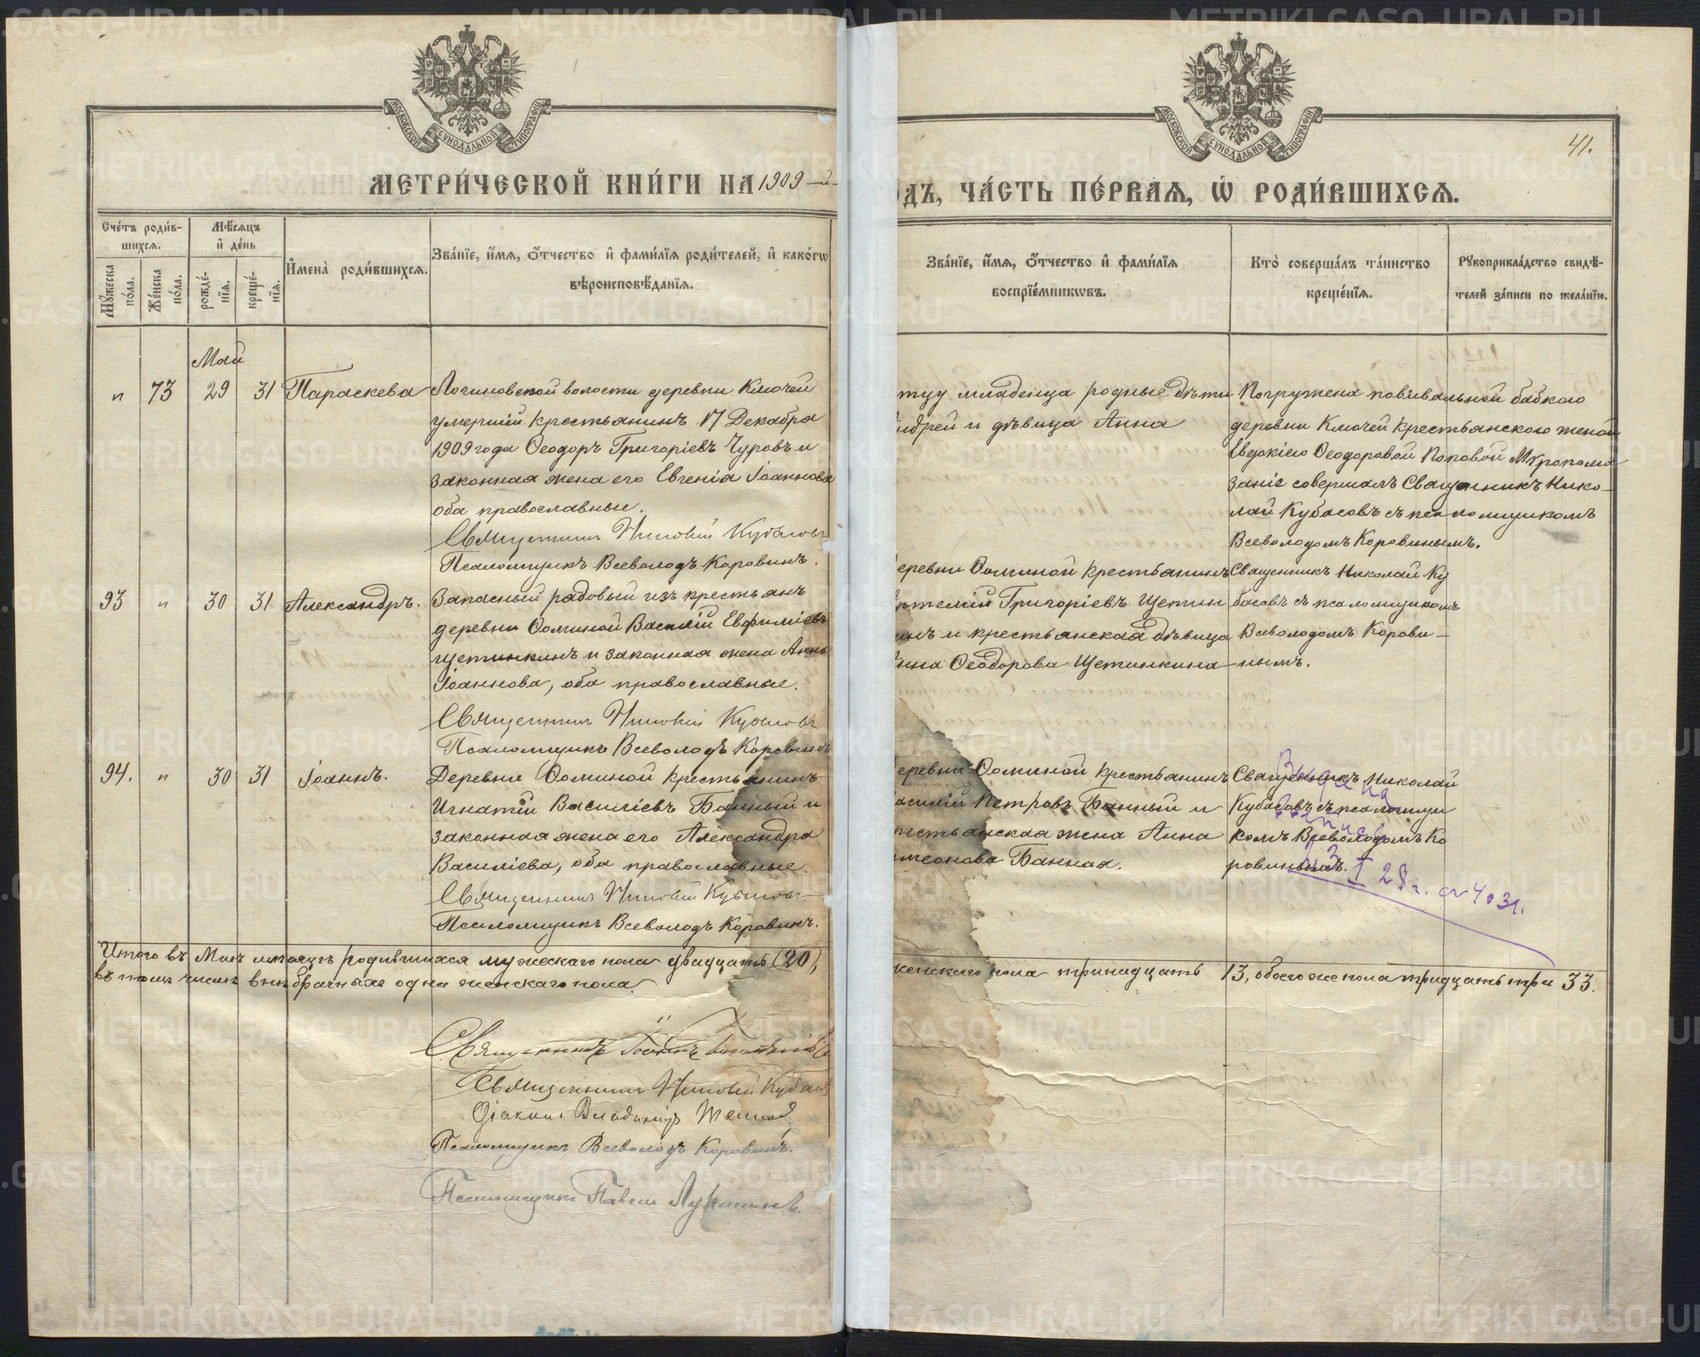 41.
МЕТРИ́ЧЕСКОЙ КНИ́ГИ НА 1909
ДЪ, ЧА́СТЬ ПЕ́РВАЯ, Ѡ РОДИ́ВШИХСЯ.
Сче́тъ роди́в-
шихся.
Мѣ́сяцъ
и де́нь
Му́жеска по́ла.
Же́нска по́ла.
рожде́-
нїя.
креще́-
нїя.
И́мена̀ роди́вшихся.
Зва́нїе, и́мя, о́тчество и фами́лїя роди́телей, и како́гѡ
вѣроисповѣ́данїя.
Зва́нїе, и́мя, о́тчество и фами́лїя
воспрїе́мникѡвъ.
Кто̀ соверша́лъ та́инство
креще́нїя.
Рукоприкла́дство свидѣ́-
телей за́писи по жела́нїю.
Май
" 73 29 31 Параскева
Логиновской волости деревни Ключей
умершій крестьянинъ 17 Декабря
1909 года Ѳеодоръ Григоріевъ Чуровъ и
законная жена его Евгенія Іоаннова
оба православные.
Священникъ Николай Кубасовъ
Псаломщикъ Всеволодъ Коровинъ.
тцу младенца родные дѣти
ндрей и дѣвица Анна
Погружена повивальной бабкою
деревни Ключей крестьянскою женой
Евдокіею Ѳеодоровой Поповой Мѵропома
заніе совершалъ Священникъ Нико-
лай Кубасовъ съ псаломщикомъ
Всеволодомъ Коровинымъ.
93 " 30 31 Александръ.
Запасный рядовый изъ крестьянъ
деревни Ѳоминой Василій Евфиміевъ
Щетинкинъ и законная жена Анна
Іоаннова, оба православные.
Священникъ Николай Кубасовъ
Псаломщикъ Всеволодъ Коровинъ
еревни Ѳоминой крестьянинъ
ртемій Григоріевъ Щетин
инъ и крестьянская дѣвица
нна Ѳеодорова Щетинкина
Священникъ Николай Ку
басовъ съ псаломщикомъ
Всеволодомъ Корови-
нымъ.
94. " 30 31 Іоаннъ.
Деревни Ѳоминой крестьянинъ
Игнатій Василіевъ Банный и
законная жена его Александра
Василіева, оба православные.
Священникъ Николай Кубасовъ
Псаломщикъ Всеволодъ Коровинъ.
еревни Ѳоминой крестьянинъ
асилій Петровъ Банный и
рестьянская жена Анна
имеонова Банная.
Священникъ Николай
Кубасовъ съ псаломщи
комъ Всеволодомъ Ко
ровинымъ.
28 г. № 4031.
Итого въ Маѣ мѣсяцѣ родившихся мужескаго пола двадцать (20),
въ томъ числѣ внѣбрачныхъ одна женскаго пола.
женскаго пола тринадцать 13, обоего же пола тридцать три 33.
Священникъ Іоаннъ
Священникъ Николай Кубасовъ
Діаконъ Владиміръ
Псаломщикъ Всеволодъ Коровинъ.
Псаломщикъ Павелъ